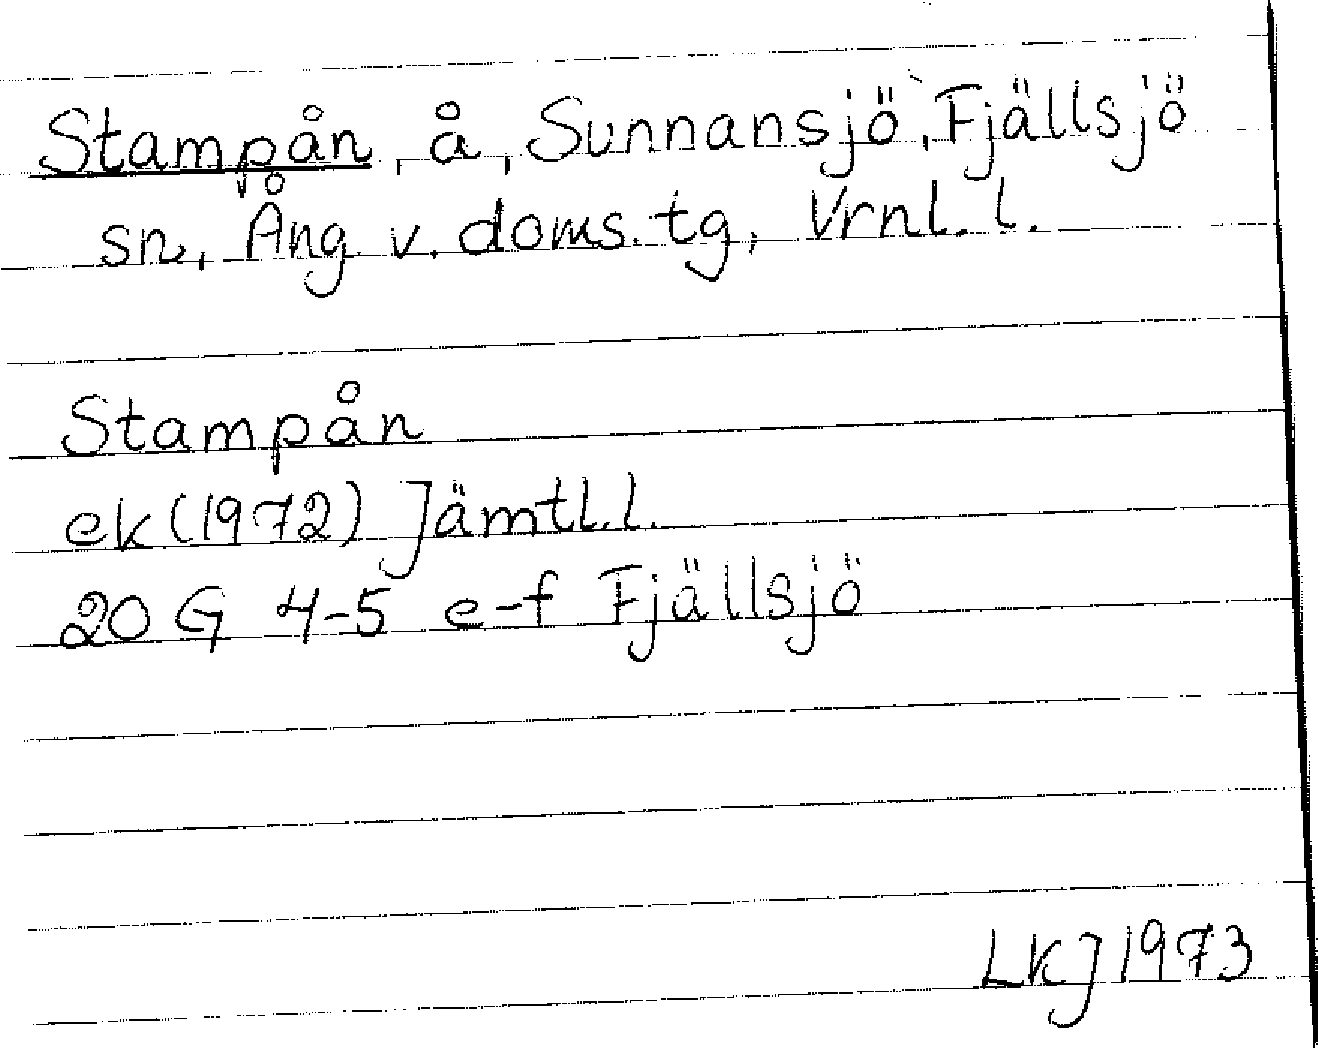 Stampån, å, Sunnansjö, Fjällsjö
sn, Ång v. doms. tg, Vrnl. l.
Stampån
ek (1972) Jämtl. l.
20 G 4-5 e-f Fjällsjö
LKJ 1973